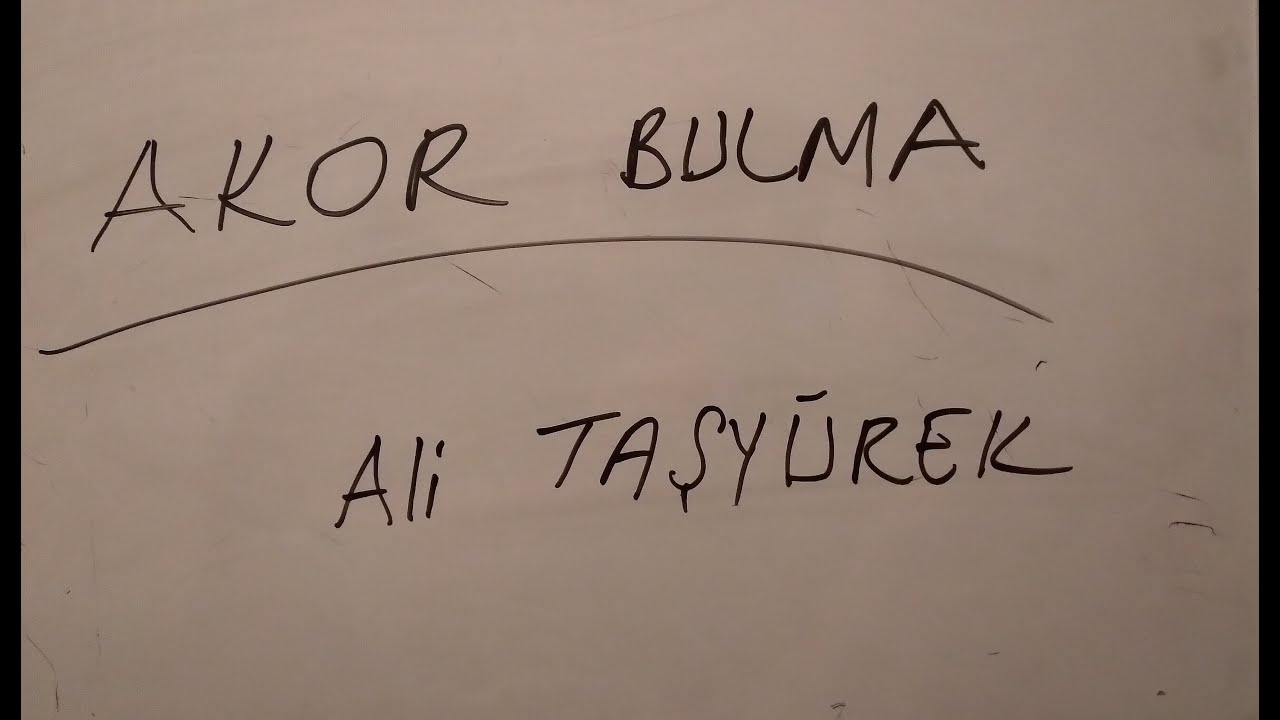 AKOR BULMA
Ali TAŞYÜREK